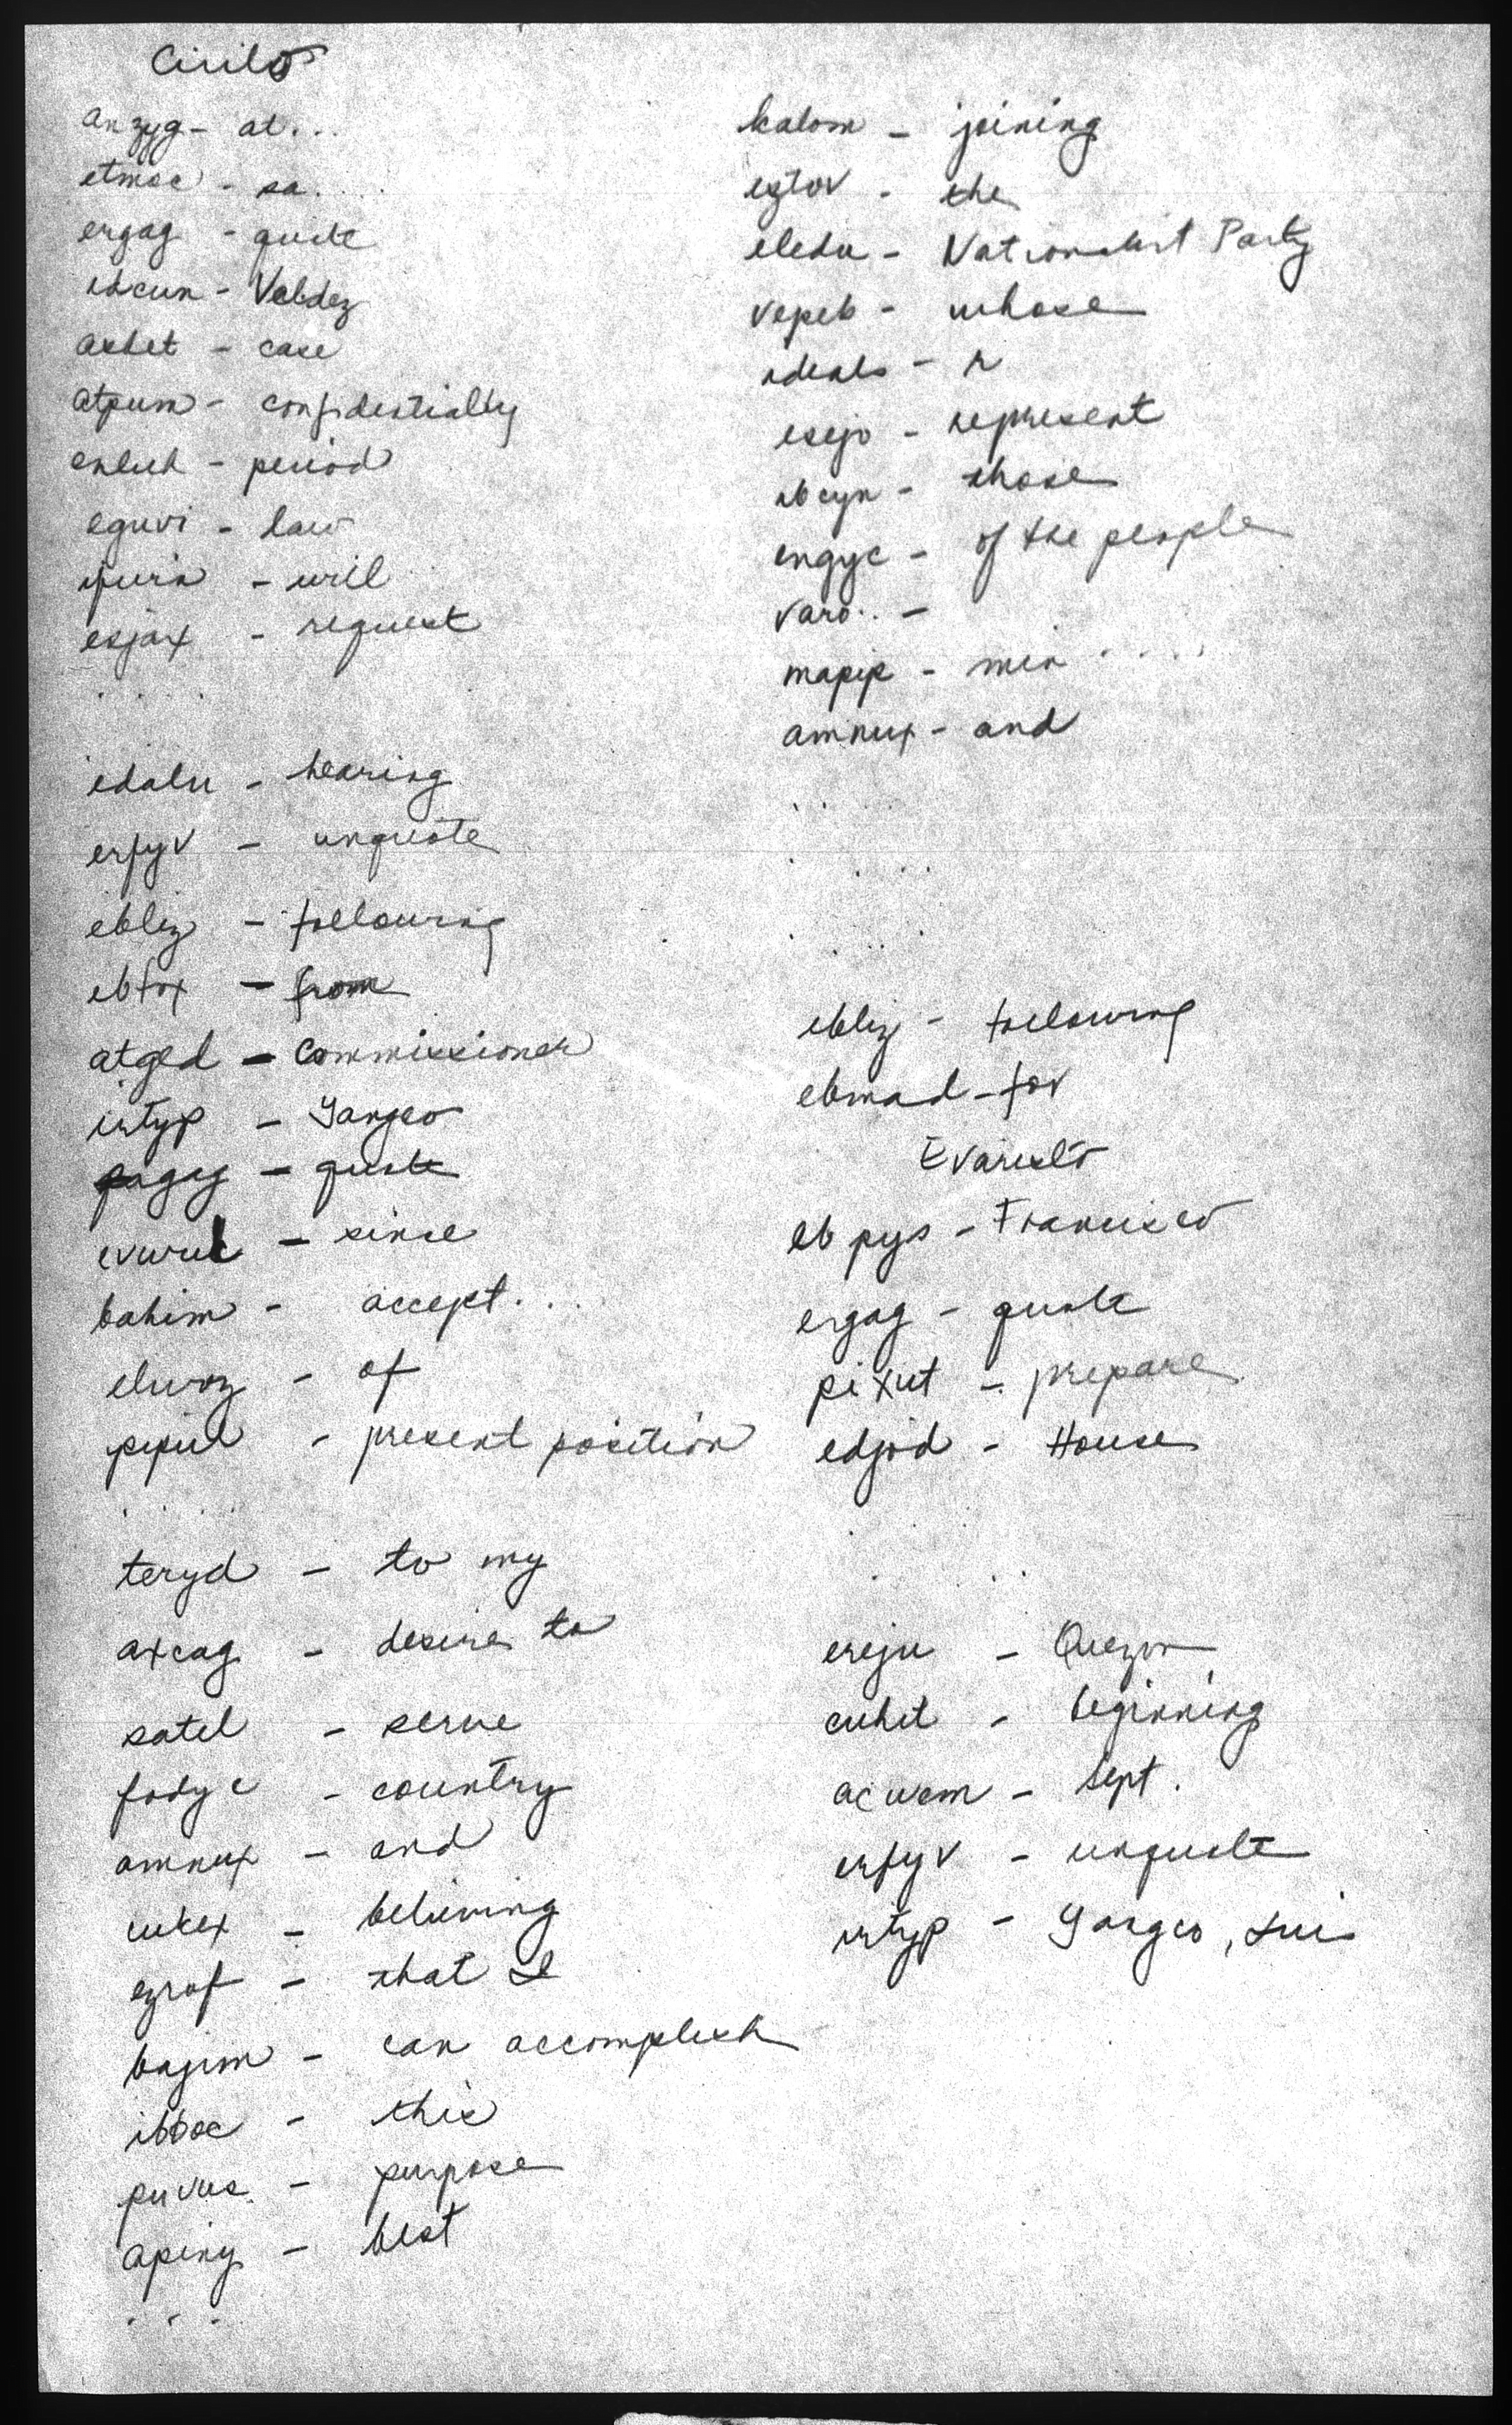 Cirilo
anzyg - at...
etmoc - sa....
ergag - quote
idcun - Valdez
axhet - case
atpum - confidentially
enluh - period
eguvi - law
ifura - will
esjax - request
.....
edalu - hearing
erfyv - unquote
ebliz - following
ebfox - from
atged - Commissioner
irtyp - Yangco
gagag - quote
evuruk - since
bahim - accept...
eluvoz - of
pipul - present position
.....
teryd - to my
axcag - desire to
satel - serve
fodyc - country
amnux - and
uckex - believing
ezraf - that I
bajim - can accomplish
ibboc - this
puvus - purpose
apiny - best
...
kalom - joining
eztov - the
eledu - Nationalist Party
vepeb - whose
adeals - r
esejo - represent
ibcyn - those
engyc - of the people
varo.. -
mapip - min....
amnux - and
.....
.....
.....
ebliz - following
ebmad - for
Evaristo
ebpys - Francisco
ergag - quote
pixut - prepare
edjod - House
.....
ereju - Quezon
cuhit - beginning
acucm - Sept.
erfyv - unquote
irtyp - Yangco, Luis